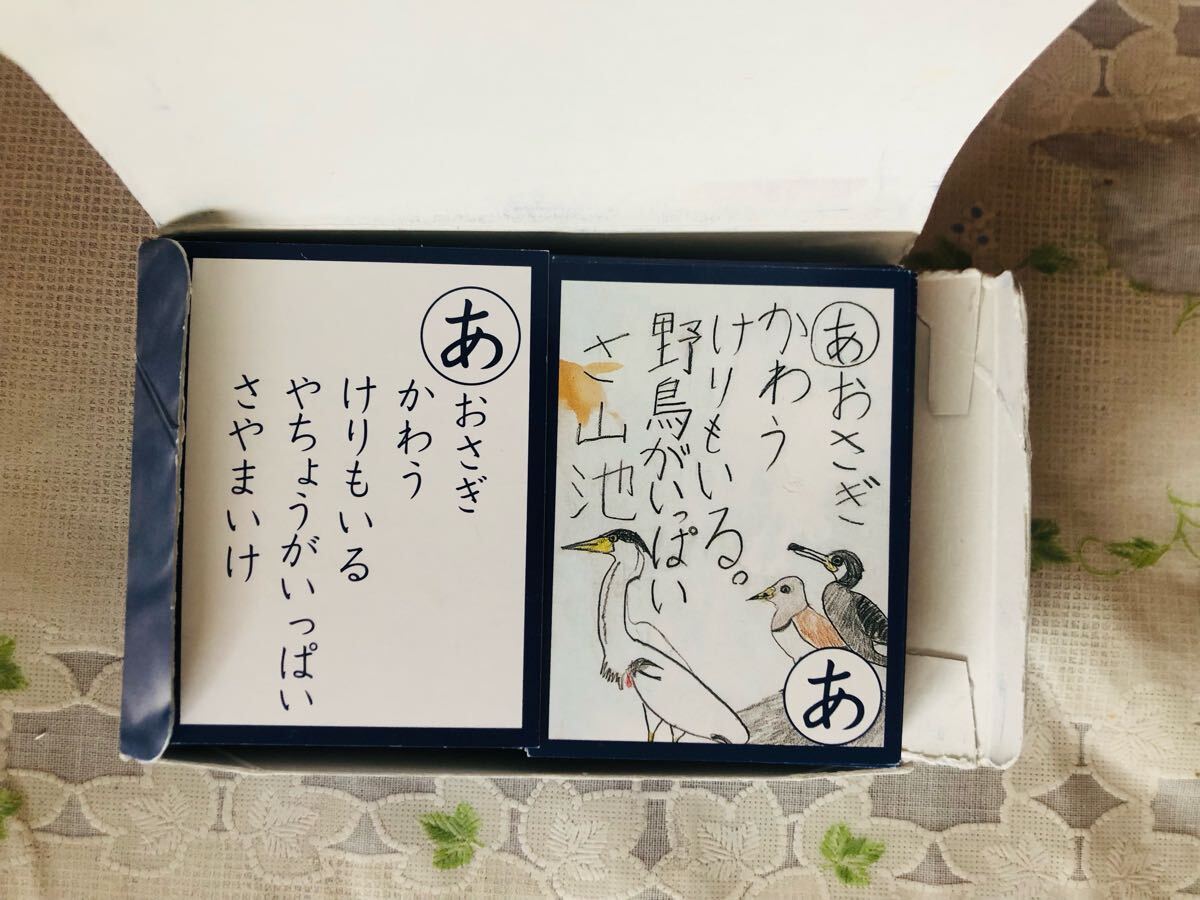 あおさぎ
かわう
けりもいる
やちょうがいっぱい
さやまいけ
あおさぎ
かわう
けりもいる。
野鳥がいっぱい
さ山池
あ